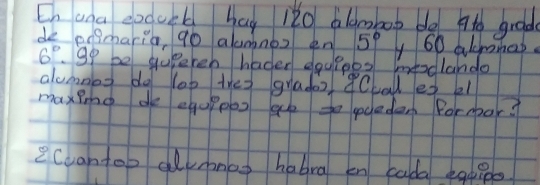 En una escuela hay 120 alumnos de 4to grado
de primaria, 90 alumnos en 5° y 60 alumnos
6°. Si se quieren hacer equipos mesclando
alumnos de los tres grados, ¿Cual es el
maximo de equipos que se pueden formar?
¿Cuantos alumnos habra en cada equipo